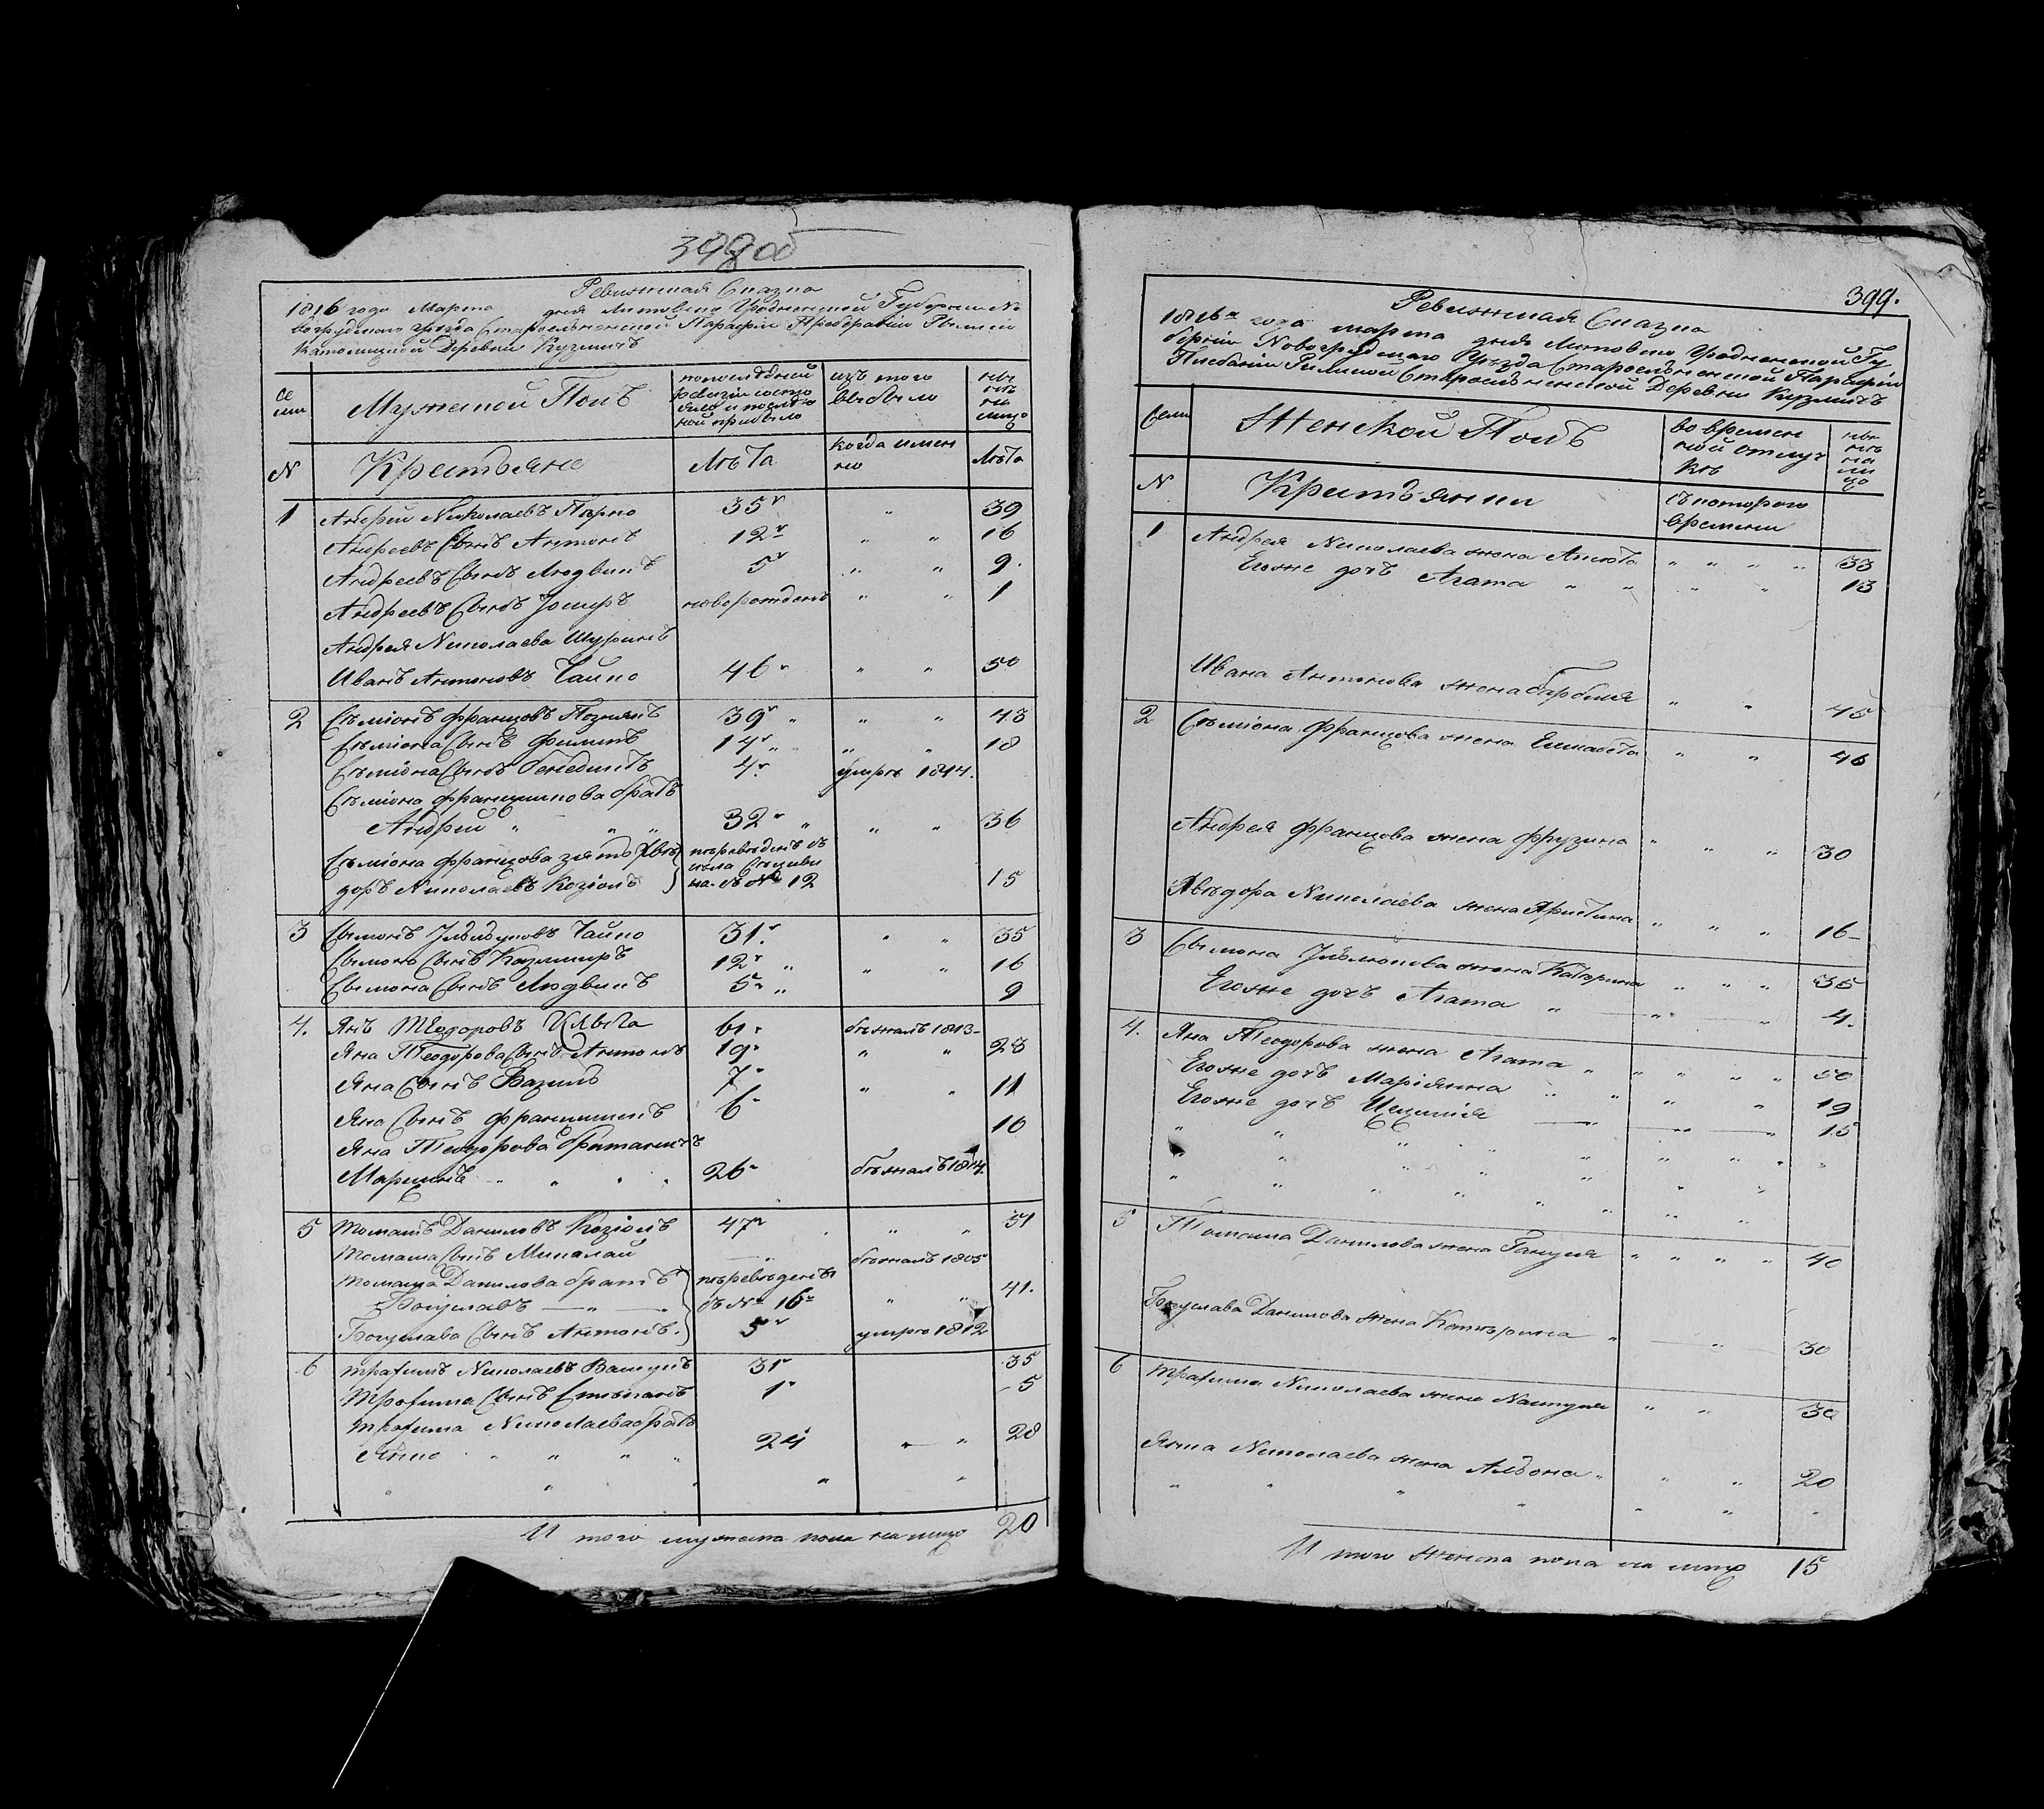 398 об
Ревижская Сказка
1816 года Марта дня Литовско Гродненской Губернии Но
вогрудскаго уезда Староельненской Парафии Пробарании Римско
Католицкой Деревни Кузмичъ
Се
мьи
Мужеской Полъ
по последней
ревизии состо
яло и после о
ной прибыло
изъ того
выбыло
ныне
на
лицо
N
Крестьяне
Лѣта
когда имен
но
Лѣта
1 Андрей Николаевъ 35 " 39
Андреевъ Сынъ Антонъ 12 " " 16
Андреевъ Сынъ Людвикъ 5 " " 9.
Андреевъ Сынъ Юзефъ новорожденъ " " 1
Андрея Николаева Шуринъ
Иванъ Антоновъ Чайко 46 " " 50
2 Сѣмiонъ Францовъ Познякъ 39 " " " 43
Сѣмiона Сынъ Филипъ 14 " " " 18
Сѣмiона Сынъ Бенедиктъ 4 умрѣ 1814.
Сѣмiона Францишкова братъ
Андрей " " " 32 " " " 36
Сѣмiона Францова зять Явѣ
доръ Николаевъ Козiолъ
пѣреведенъ съ
села
на съ № 12
15
3 Сымонъ Чайко 31. " " 35
Сымона Сынъ Казимиръ 12 " " " 16
Сымона Сынъ Людвикъ 5 " 9
4. Янъ Теодоровъ 61 бѣжалъ 1813
Яна Теодорова Сынъ Антонъ 19 " " 23
Яна Сынъ Базыль 7 " " 11
Яна Сынъ Францишекъ 6 10
Яна Теодорова братаничъ
Марцинъ " " " " 26 бѣжалъ 1814.
5 Томашъ Даниловъ Козiолъ 47 " " 51
Томаша Сынъ Миколай — " бѣжалъ 1805
Томаша Данилова братъ
Богуславъ — " — "
пѣреведенъ
съ № 16
" " 41.
Богуслава Сынъ Антонъ. 5 умрѣ 1812
6 Трахимъ Николаевъ 31 35
Трохима Сынъ Стэпанъ 1 5
Трохима Николаева братъ
Янко " " " " 24 " " 28
" " " " "
И того мужеска пола на лицо 20
399.
Ревижская Сказка
1816 года марта дня Литовско Гродненской Гу
бернiи Новогрудскаго Уезда Староельненской Парафiи
Плебанiи Римской Староельненской Деревни Кузмичъ
Семи
Женской Полъ
во времен
ной отлуч
кѣ
ныне
на
ли
цо
N
Крестьянки
съ котораго
времени
1 Андрея Николаева жена Анюта " " " " 33
Егоже дочъ Агата " " " " 13
Ивана Антонова жена Барбыля " " 45
2 Сѣмiона Францова жена Елисавета " " 46
Андрея Францова жена Фрузина " " " 30
Явѣдора Николаева жена Христина " " " 16
3 Сымона жена Катарина " " " 35
Егоже дочъ Агата " " " 4.
4. Яна Теодорова жена Агата " " " " " 50
Егоже дочъ Марiянна " " " " 19
Егоже дочъ Цецилiя — " — " 15
" " " " " " " " "
" " " " " " " "
5 Томаша Данилова жена Ганулля " " " " 40
Богуслава Данилова жена Катѣрина " " 30
6 Трахима Николаева жена Настулля " " 30
Янка Николаева жена Алдона " " " 20
" " " " " " "
И того женска пола на лицо 15